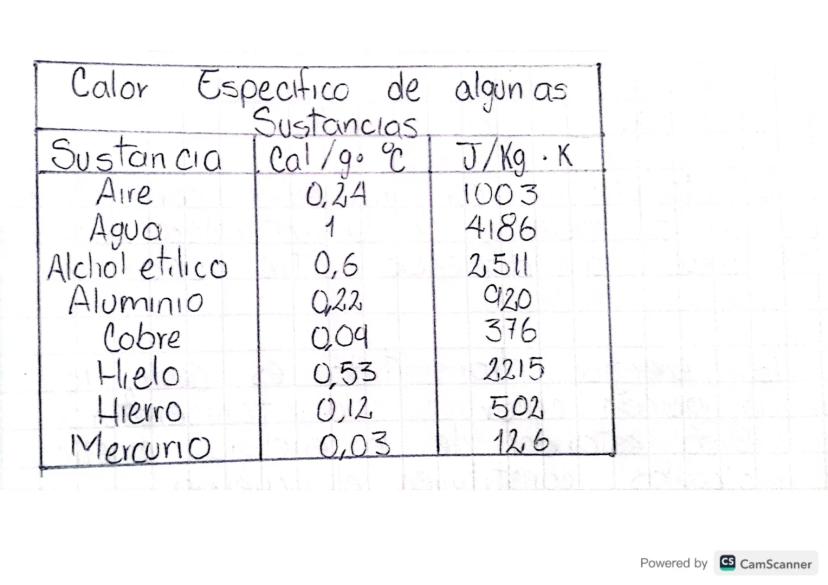 Calor Especifico de algunas
Sustancias
Sustancia Cal/g.°C J/Kg.K
Aire 0,24 1003
Agua 1 4186
Alchol etilico 0,6 2511
Aluminio 0,22 920
Cobre 0,09 376
Hielo 0,53 2215
Hierro 0,12 502
Mercurio 0,03 126
Powered by CS CamScanner